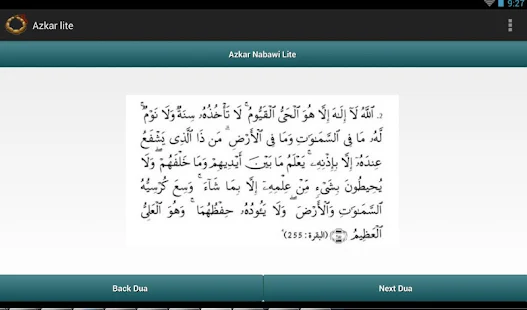 9:27
Azkar lite
Azkar Nabawi Lite
2. ٱللَّهُ لَآ إِلَـٰهَ إِلَّا هُوَ ٱلْحَىُّ ٱلْقَيُّومُ ۚ لَا تَأْخُذُهُۥ سِنَةٌ وَلَا نَوْمٌ ۚ
لَّهُۥ مَا فِى ٱلسَّمَـٰوَٰتِ وَمَا فِى ٱلْأَرْضِ ۗ مَن ذَا ٱلَّذِى يَشْفَعُ
عِندَهُۥٓ إِلَّا بِإِذْنِهِۦ ۚ يَعْلَمُ مَا بَيْنَ أَيْدِيهِمْ وَمَا خَلْفَهُمْ ۖ وَلَا
يُحِيطُونَ بِشَىْءٍ مِّنْ عِلْمِهِۦٓ إِلَّا بِمَا شَآءَ ۚ وَسِعَ كُرْسِيُّهُ
ٱلسَّمَـٰوَٰتِ وَٱلْأَرْضَ ۖ وَلَا يَـُٔودُهُۥ حِفْظُهُمَا ۚ وَهُوَ ٱلْعَلِىُّ
ٱلْعَظِيمُ (البقرة: 255)
Back Dua
Next Dua